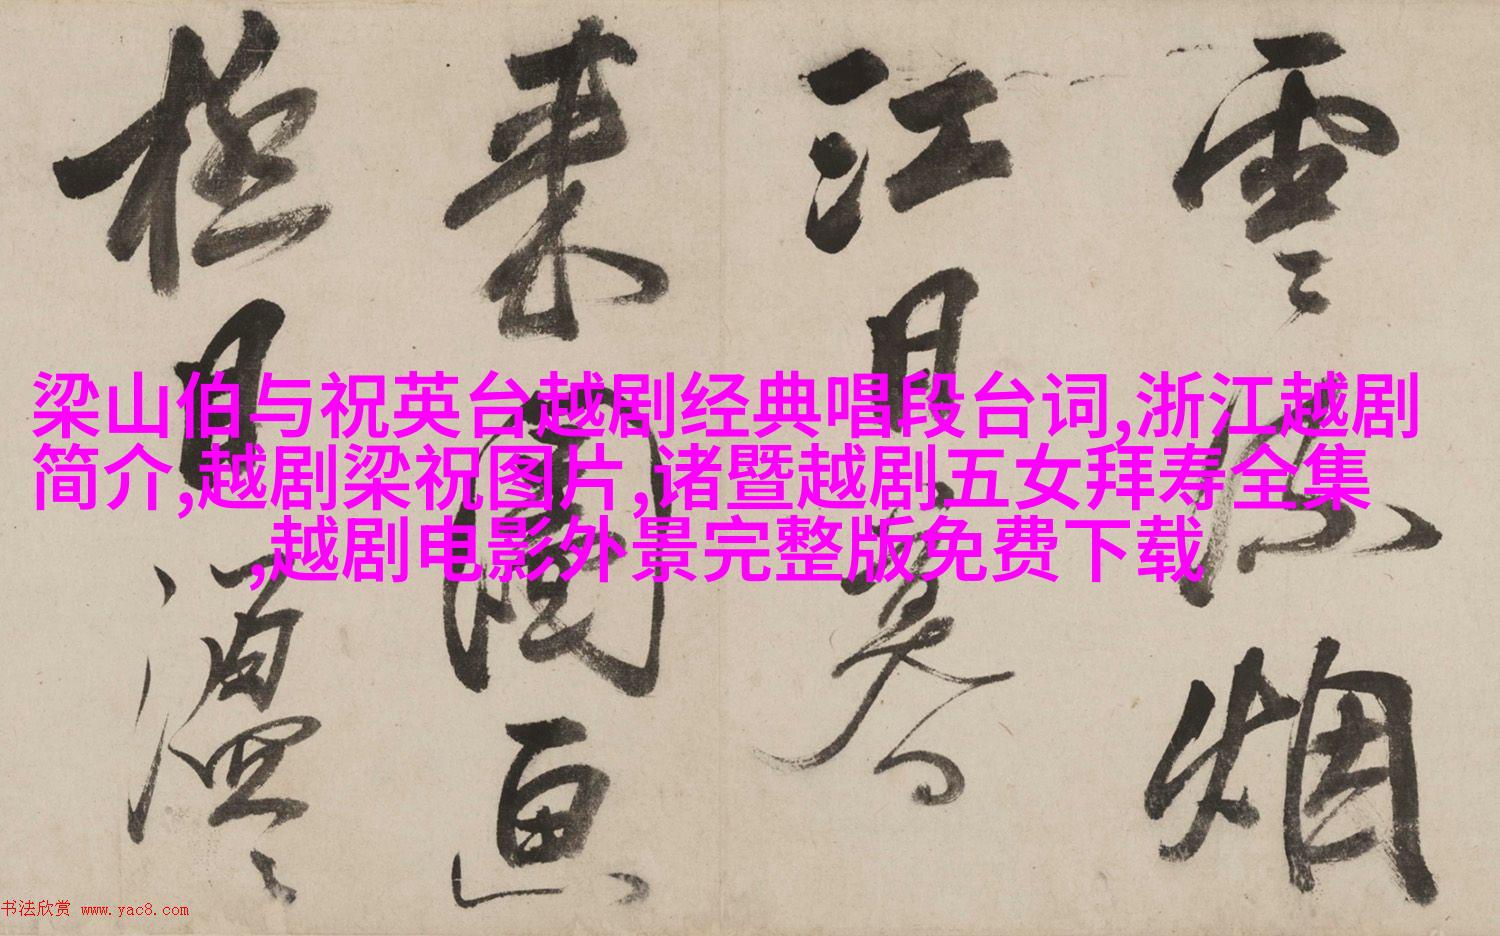 雲烟
江月
来圖画
極目
梁山伯与祝英台越剧经典唱段台词,浙江越剧
简介,越剧梁祝图片,诸暨越剧五女拜寿全集
,越剧电影外景完整版免费下载
书法欣赏 www.yac8.com